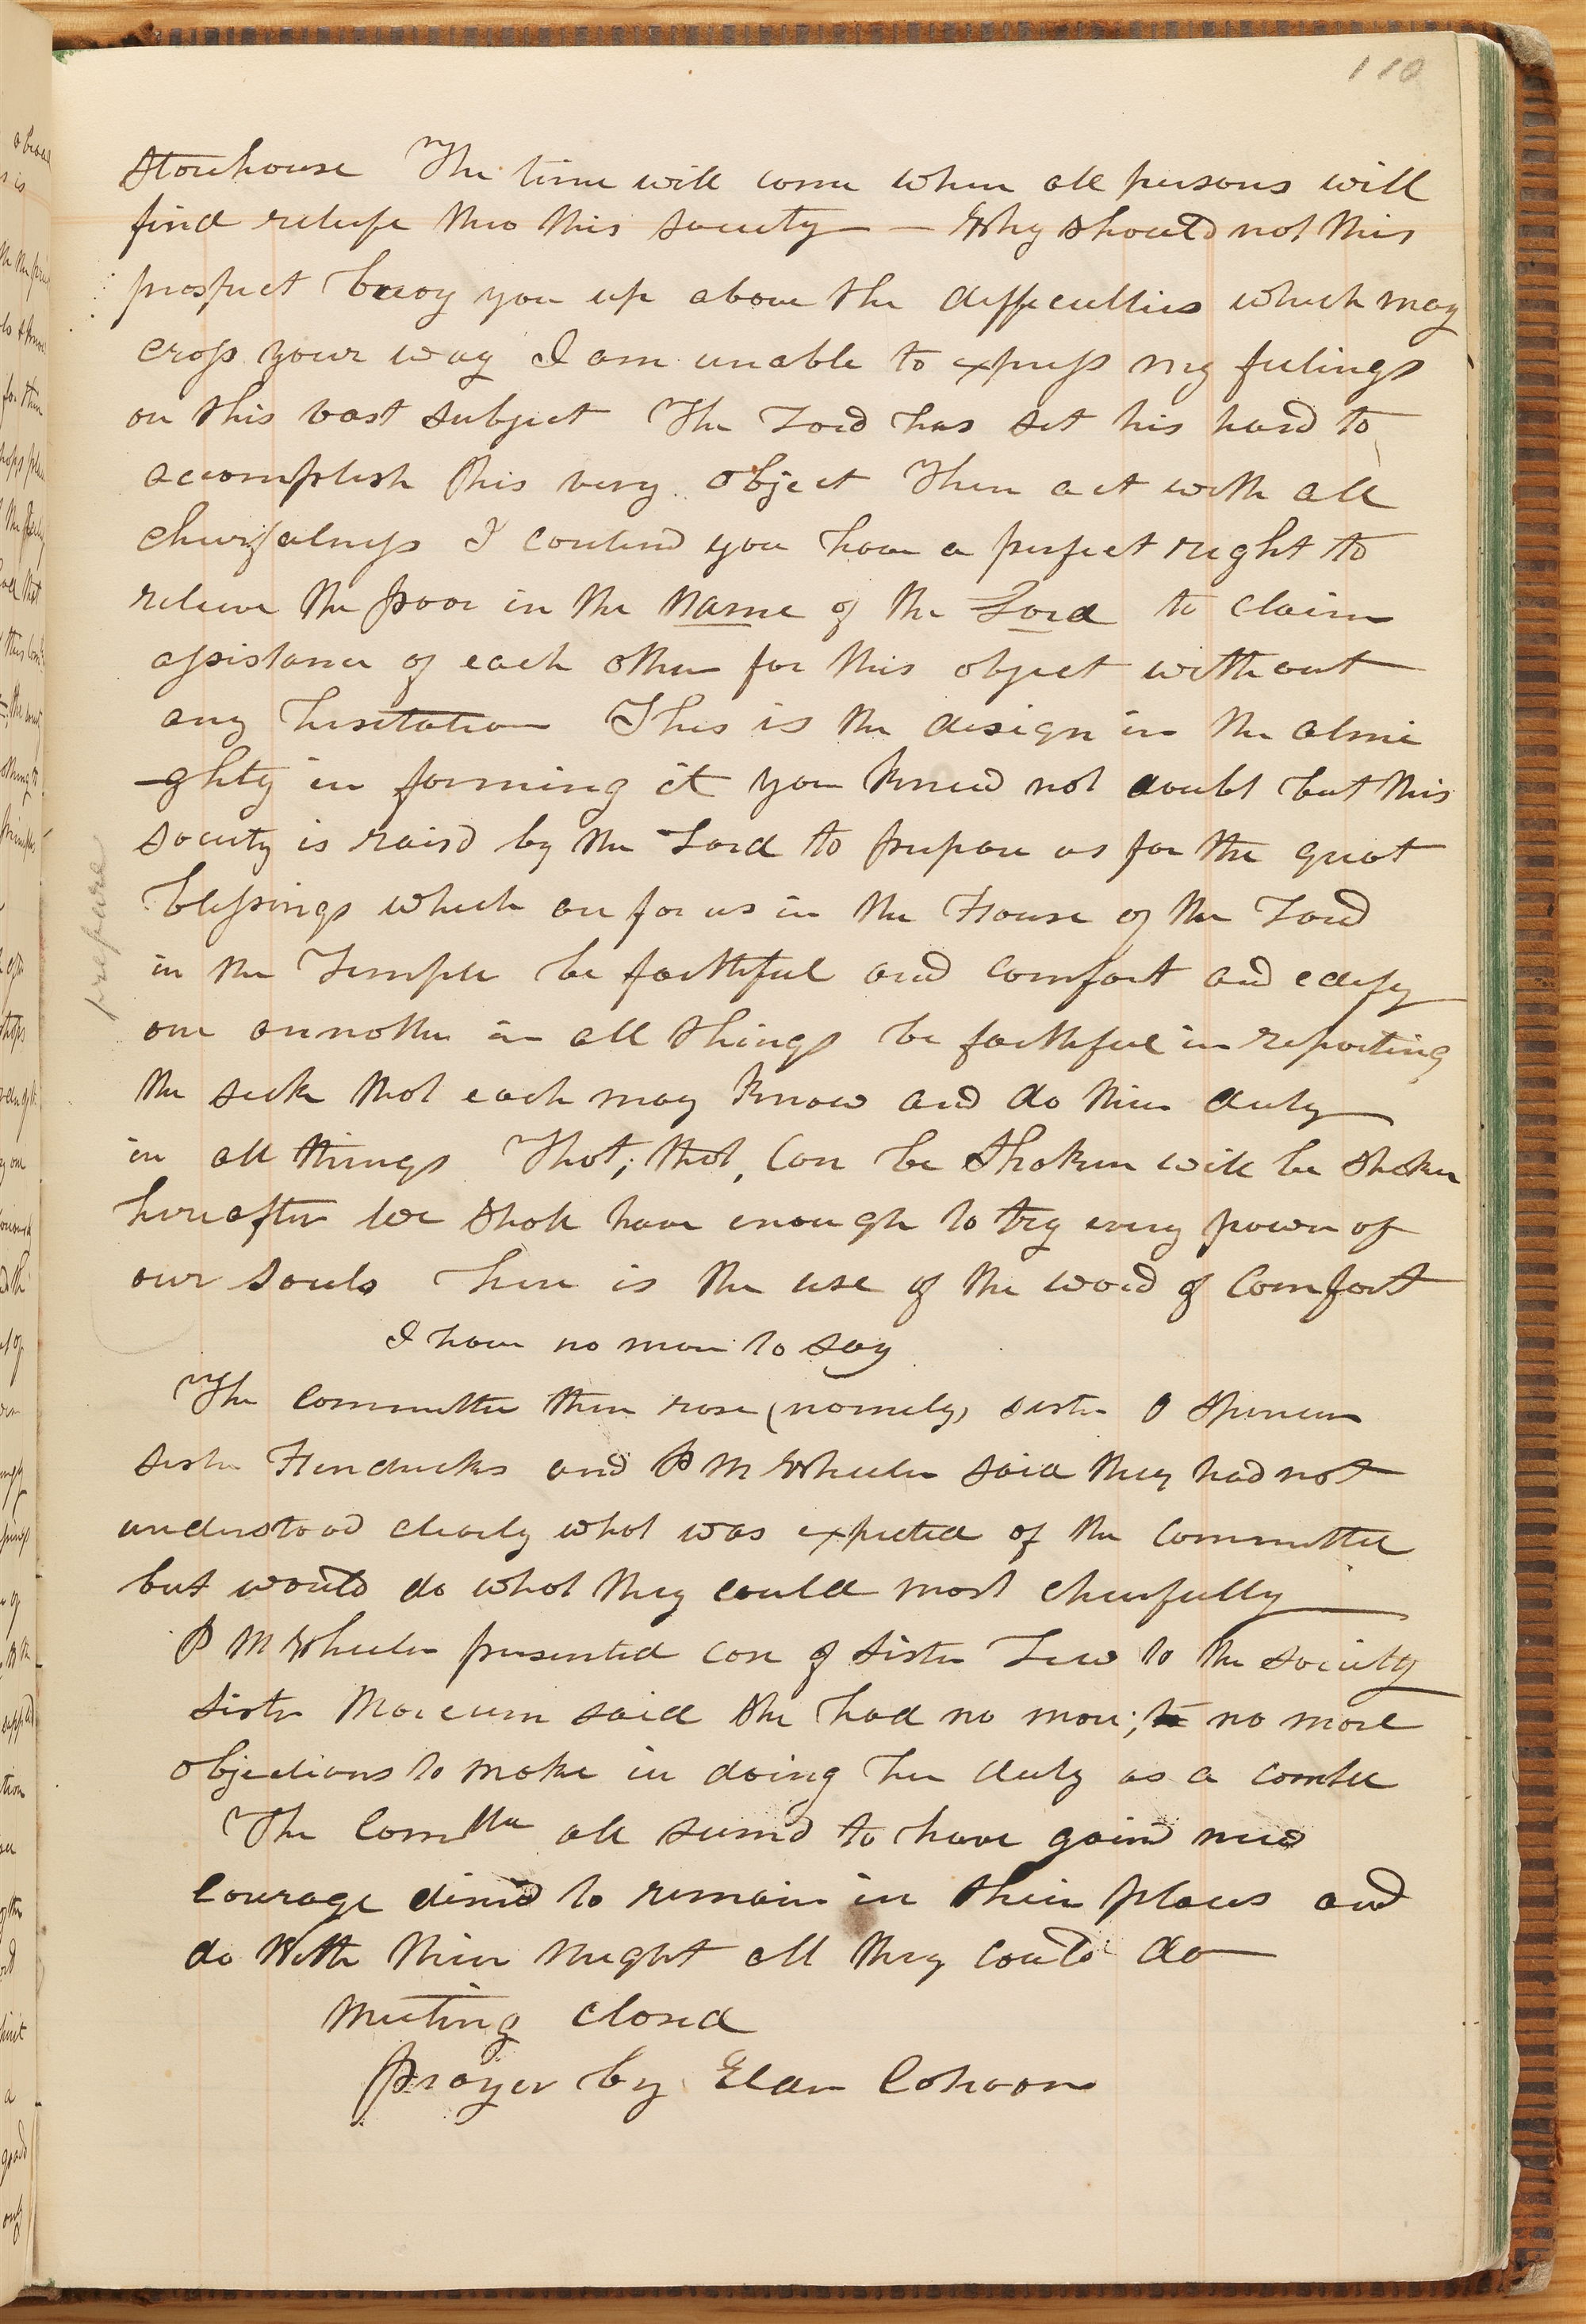 110
Storehouse The time will come when all persons will
find reliefe thro this society — Why should not this
prospect buoy you up above the difficulties which may
cross your way I am unable to express my feelings
on this vast subject The Lord has set his hand to
accomplish this very object Then act with all
cheerfulness I contend you have a perfect right to
relieve the poor in the name of the Lord to claim
assistance of each other for this object without
any hesitation This is the design in the almi
-ghty in forming it you kneed not doubt but this
society is raisd by the Lord to prepare us for the great
blessings which are for us in the House of the Lord
in the Temple be faithful and comfort and edify
one annother in all things be faithful in reporting
the sick that each may know and do their duty
in all things That, that, can be shaken will be shaken
hereafter we shall have enough to try every power of
our souls here is the use of the word of Comfort
I have no more to say
The committee then rose (namely) sister O Spencer
sister Hendricks and P M Wheeler said they had not
understood clearly what was expected of the committee
but would do what they could most cheerfully
P M Wheeler presented case of sister Lew to the society
Sister Marcum said she had no more; to no more
objections to make in doing her duty as a comtee
The Committee all seemd to have gaind new
courage desird to remain in their places and
do With their might all they could do
Meeting closed
prayer by Elder Cohoon
prepare